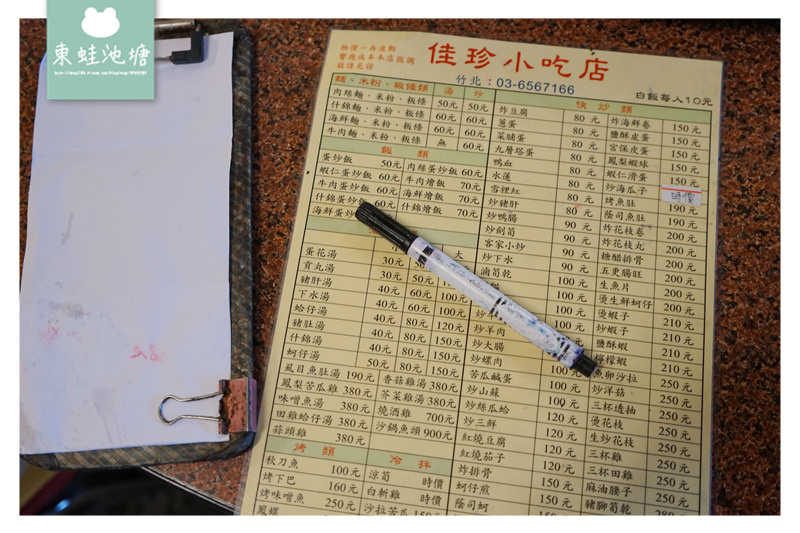 東蛙池塘
物價一再波動
響應成本本店微調
敬請見諒
佳珍小吃店
竹北:03-6567166
白飯每人10元
麵、米粉、板條類 湯 炒
肉絲麵、米粉、板條 50元 50元
什錦麵、米粉、板條 60元 60元
海鮮麵、米粉、板條 60元 60元
牛肉麵、米粉、板條 無 60元
飯類
蛋炒飯 50元 肉絲蛋炒飯 60元
蝦仁蛋炒飯 60元 牛肉燴飯 70元
牛肉蛋炒飯 60元 海鮮燴飯 70元
什錦蛋炒飯 60元 什錦燴飯 70元
海鮮蛋炒
小 大
蛋花湯 30元 50
貢丸湯 30元 50元
豬肝湯 40元 60元 100元
下水湯 40元 60元 100元
蛤仔湯 40元 80元 120元
豬肚湯 40元 80元 150元
什錦湯 40元 80元 150元
蚵仔湯 50元 80元 150元
虱目魚肚湯 190元 香菇雞湯 380元
鳳梨苦瓜雞 380元 芥菜雞湯 380元
味噌魚湯 380元 燒酒雞 700元
田雞蛤仔湯 380元 沙鍋魚頭 900元
蒜頭雞 380元
烤類 冷拌
秋刀魚 100元 涼筍 時價
烤下巴 160元 白斬雞 時價
烤味噌魚 250元 沙拉苦瓜 150元
快炒類
炸豆腐 80元
蔥蛋 80元
菜脯蛋 80元
九層塔蛋 80元
鴨血 80元
水蓮 80元
雪裡紅 80元
炒豬肝 80元
炒鴨腸 90元
炒劍筍 90元
客家小炒 90元
炒下水 90元
滷筍乾 100元
100元
炒 100元
炒羊肉 100元
炒大腸
炒螺肉
苦瓜鹹蛋 100
炒山蘇 100元
炒絲瓜蛤 100元
炒三鮮 120元
紅燒豆腐 120元
紅燒茄子 120元
炸排骨 120元
蚵仔煎 150元
蔭司蚵 150元
炸海鮮卷 150元
鹽酥皮蛋 150元
宮保皮蛋 150元
鳳梨蝦球 150元
蝦仁滑蛋 150元
炒海瓜子 時價
烤魚肚 190元
蔭司魚肚 190元
炸花枝卷 200元
炸花枝丸 200元
糖醋排骨 200元
五更腸旺 200元
生魚片 200元
燙生鮮蚵仔 200元
燙蝦子 210元
炒蝦子 210元
鹽酥蝦 210元
檸檬蝦 210元
魚卵沙拉 250元
炒洋菇 250元
三杯透抽 250元
燙花枝 250元
生炒花枝 250元
三杯雞 250元
三杯田雞 250元
麻油腰子 250元
豬腳筍乾 280元